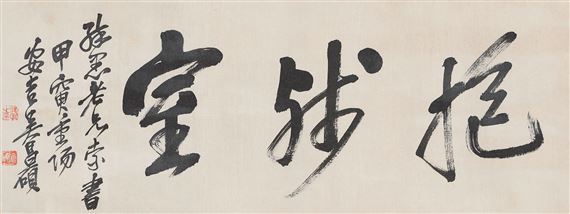 抱殘室
老兄索書
甲寅重陽
安吉吳昌碩